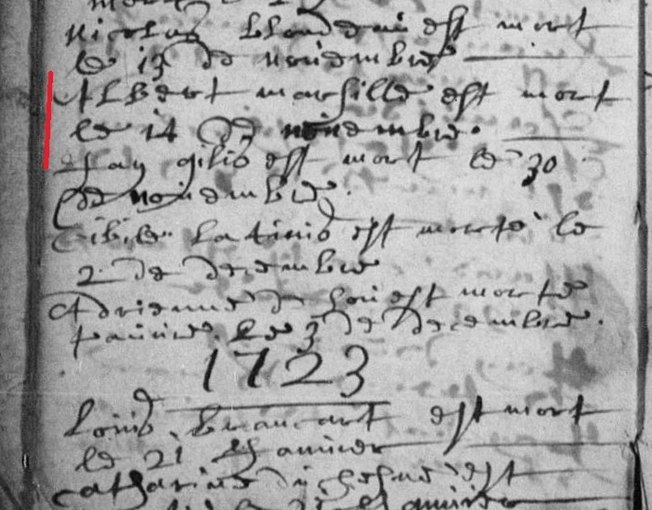 Nicolas blondeau est mort
le 13 de novembre
Albert marsille est mort
le 14 de novembre.
Jan gilis est mort le 30
de novembre.
Cibile latinis est morte le
2 de decembre
Adrienne de est morte
le 3 de decembre.
1723
Louis brancart est mort
le 21 Janvier
catharine du est
Janvier